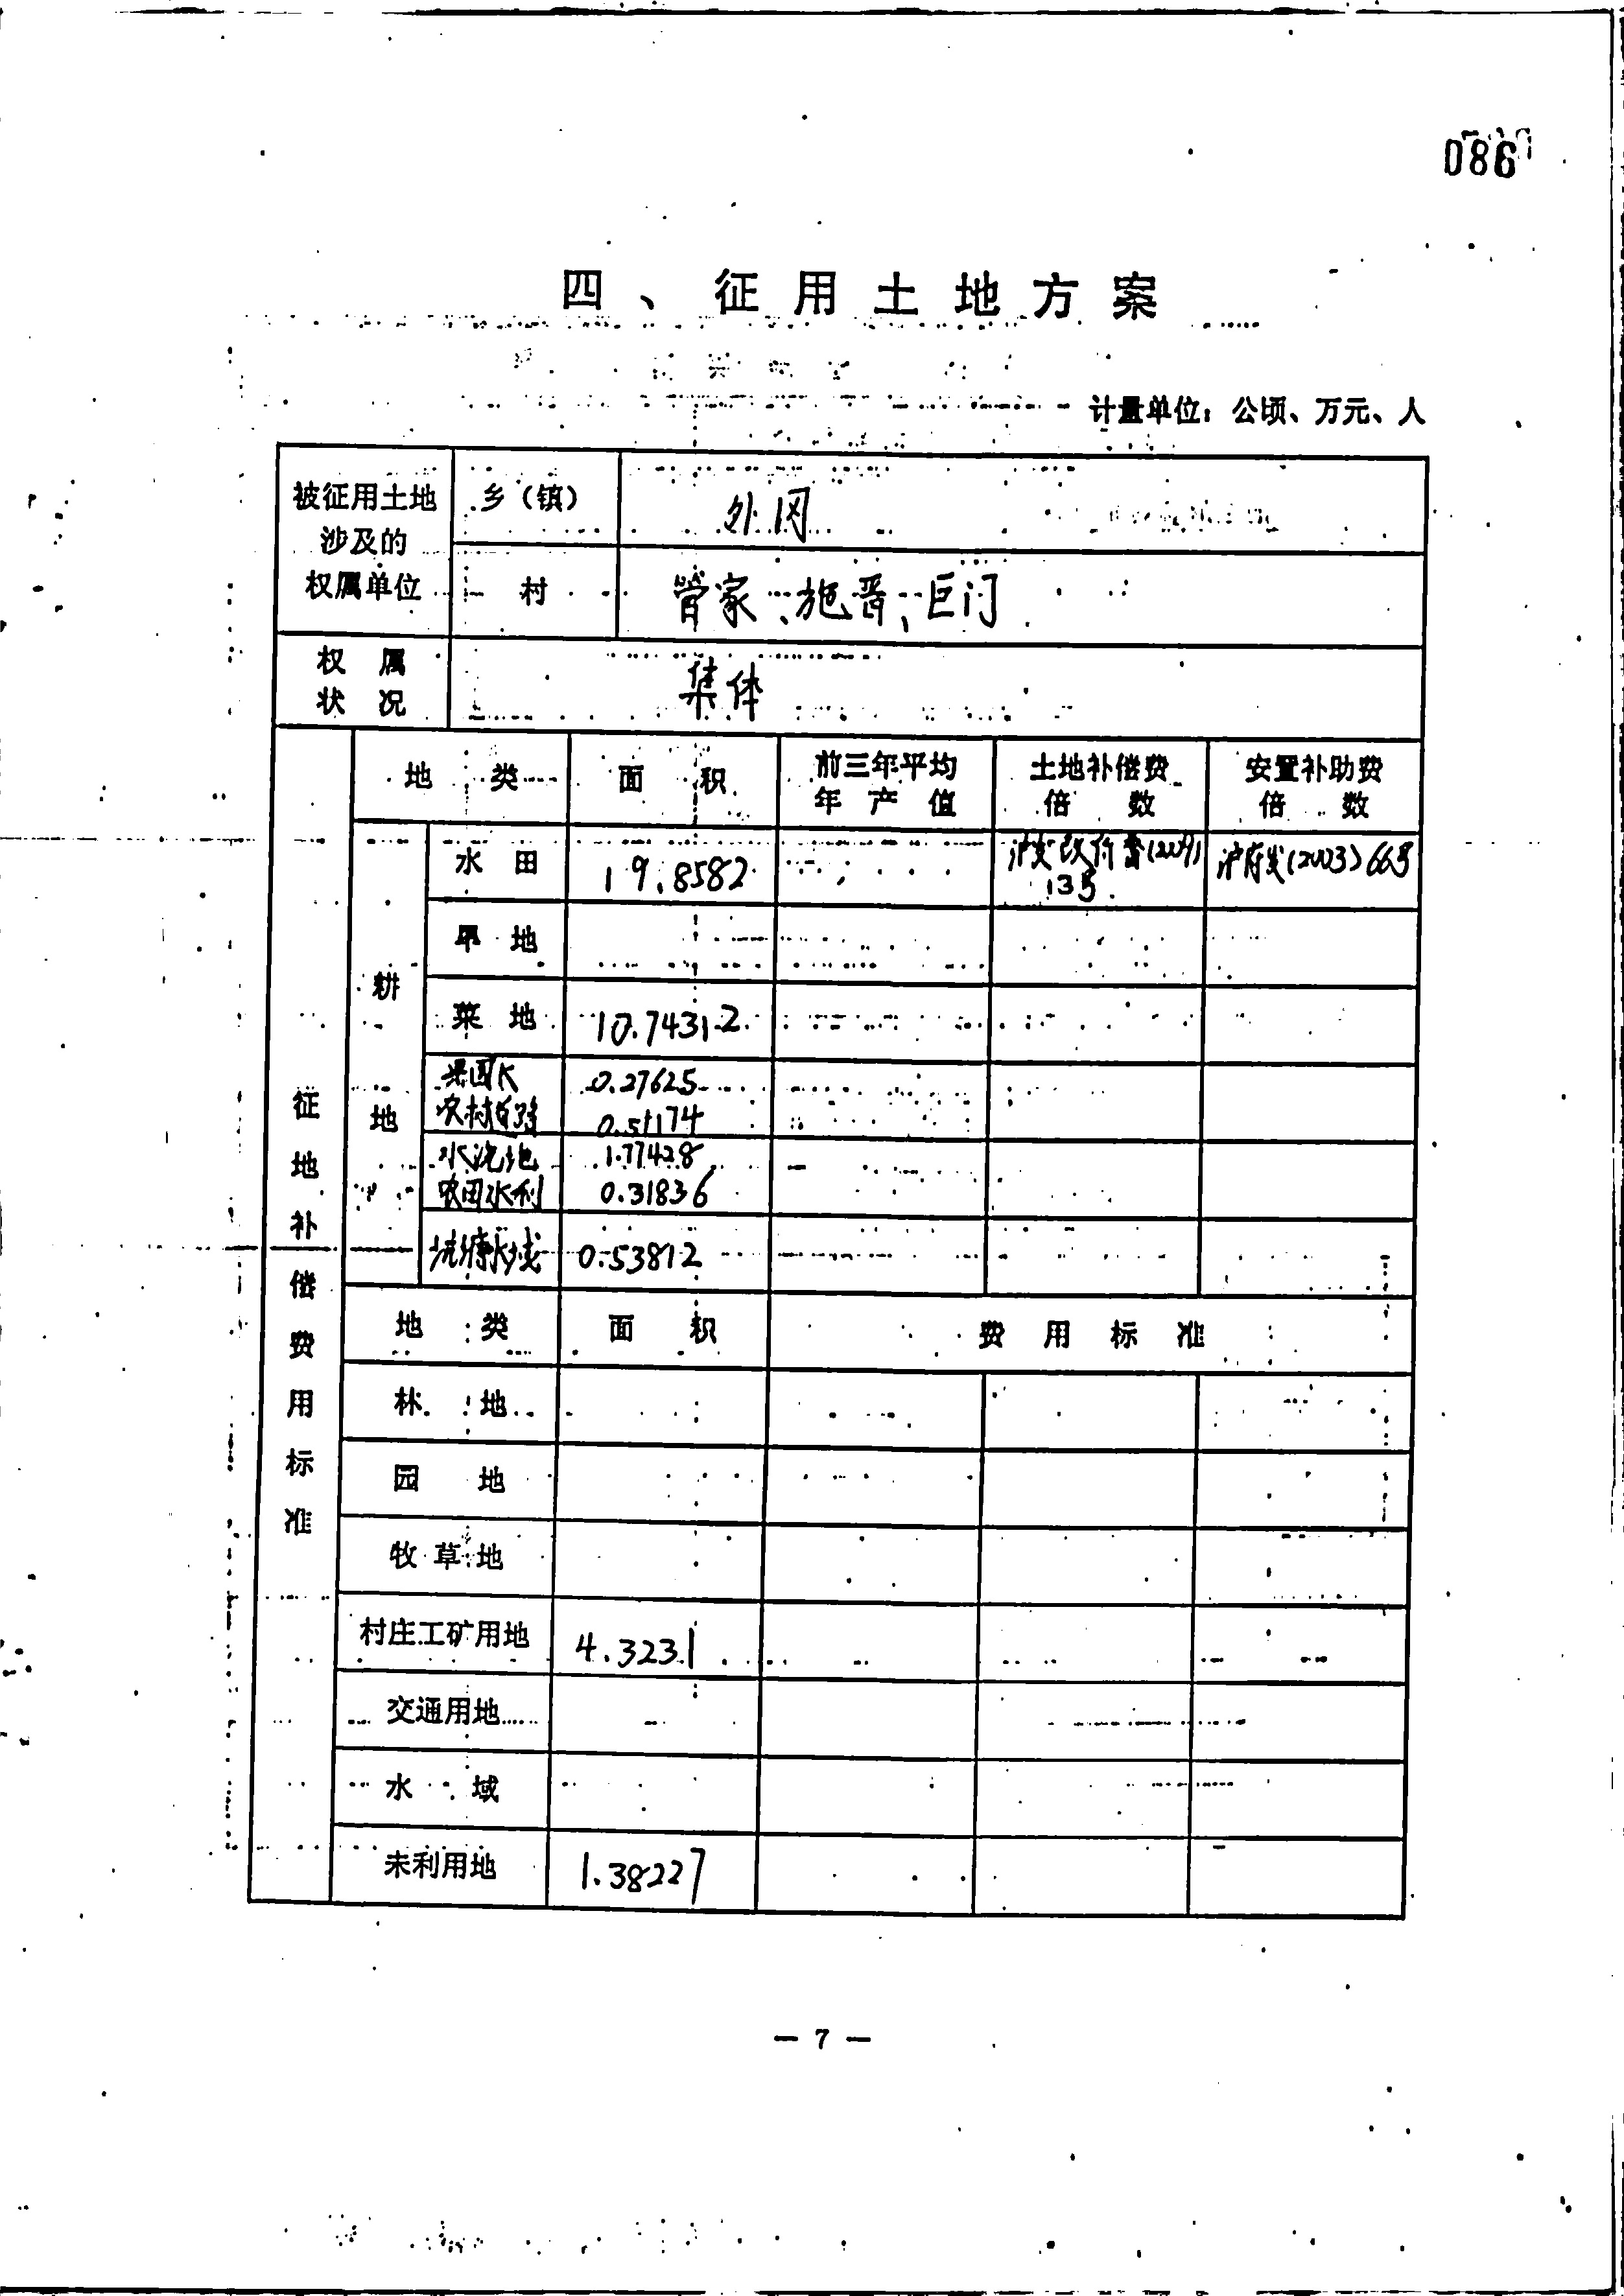 086
四、征用土地方案
计量单位：公顷、万元、人
被征用土地
涉及的
权属单位
乡（镇）
外冈
村
管家、施晋、巨门
权属
状况
集体
征地补偿费用标准
地类
面积
前三年平均
年产值
土地补偿费
倍数
安置补助费
倍数
耕地
水田
19.8582
沪发改价督(2009)
13号
沪府发(2003)66号
旱地
菜地
10.74312
果园
0.27625
农村道路
0.51174
水浇地
1.77428
农田水利
0.31836
坑塘水域
0.53812
地类
面积
费用标准
林地
园地
牧草地
村庄工矿用地
4.3231
交通用地
水域
未利用地
1.38227
— 7 —